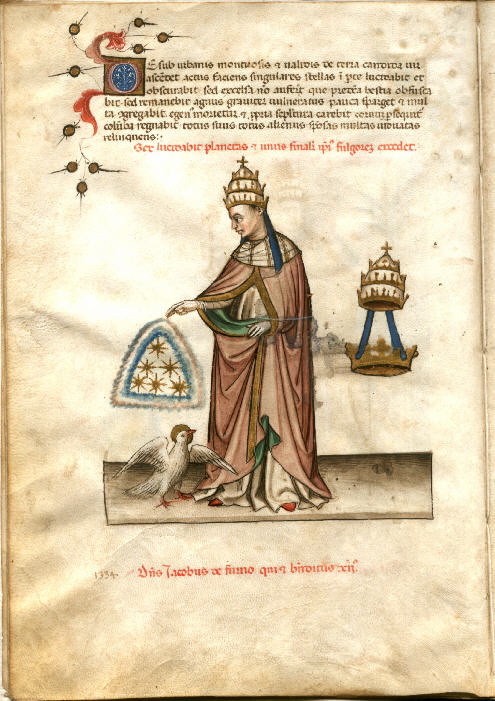 DE sub urbanis montuosis & nativis de terra cantorda
ascēdet actus faciens singulares stellas ī p̄re lucrabit et
obscurabit sed excelsa nō auferet que p̄terea bestia obfusca
bit sed remanebit agnus graviter vulneratus pauca sparget & mul
ta agregabit egen' morietur & p̄pria sepltura carebit corvum p̄sequitr
colūba regnabit totus suus totus alienus sposas multas viduatas
relinquens:·
Sex lucrabit planetas & unus finalr̄ ip̄i' fulgorez excedet.
1334. Dn̄s Jacobus de furno qui & bn̄dictus xii'.